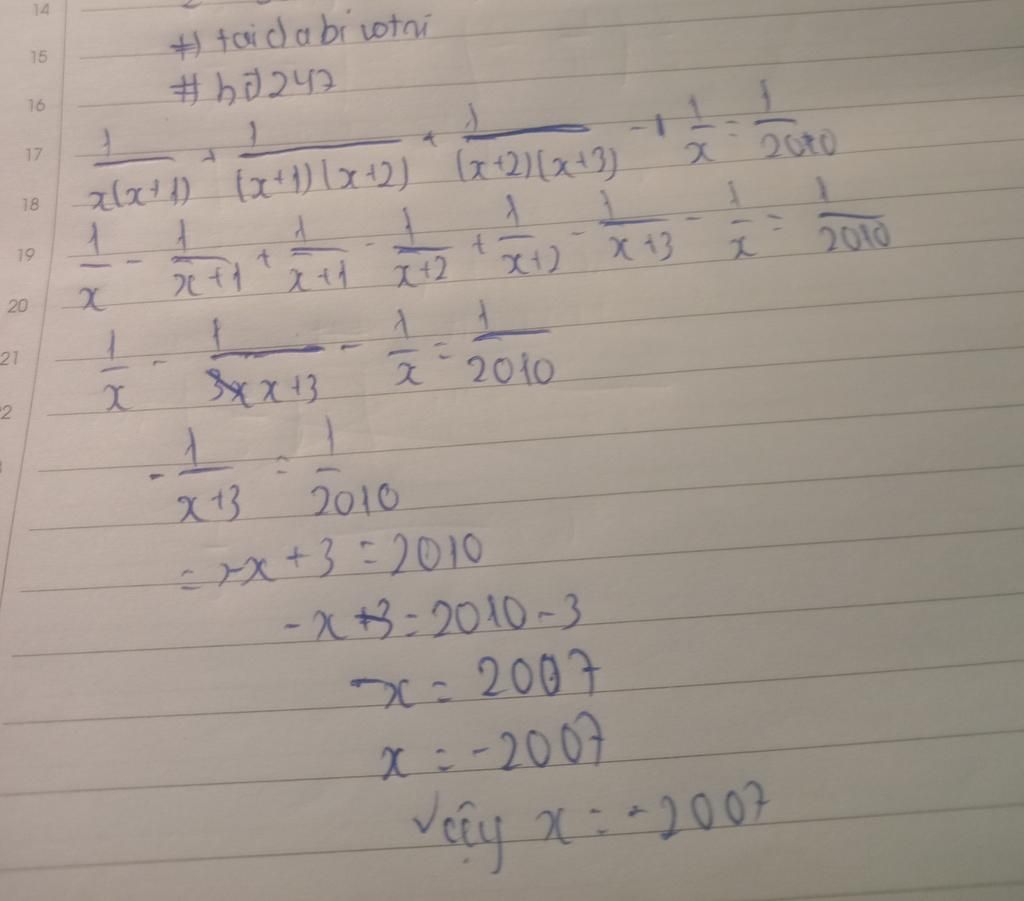 14
15
#) taidabivotri
16
# hd247
17
1/x(x+1) + 1/(x+1)(x+2) + 1/(x+2)(x+3) - 1/x = 1/2010
18
19
1/x - 1/x+1 + 1/x+1 - 1/x+2 + 1/x+2 - 1/x+3 - 1/x = 1/2010
20
21
1/x - 1/x+3 - 1/x = 1/2010
2
- 1/x+3 = 1/2010
= -x + 3 = 2010
-x = 2010 - 3
-x = 2007
x = -2007
Vậy x = -2007